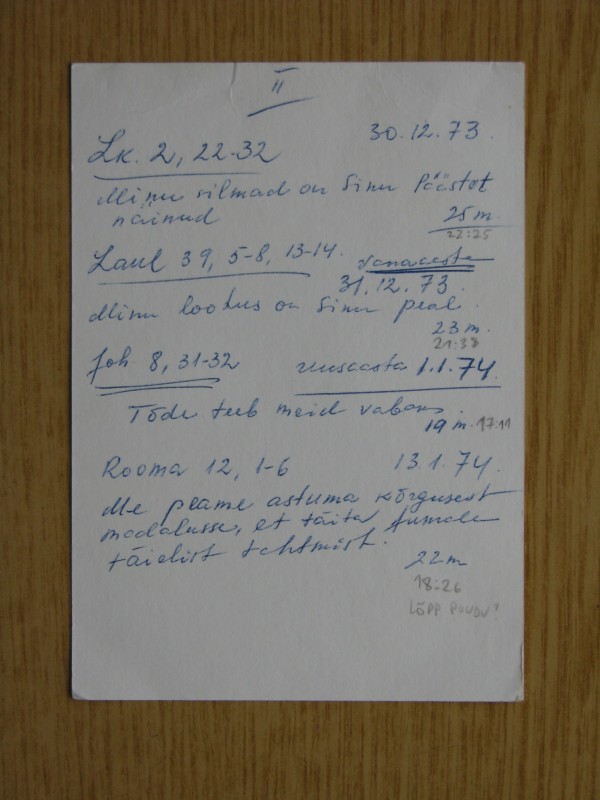 II
30.12.73.
Lk. 2, 22-32
Minu silmad on Sinu Päästet
näinud
25 m.
22:25
Laul 39, 5-8, 13-14.
vanaaasta
31.12.73.
Minu lootus on Sinu peal.
23 m.
21:38
Joh 8, 31-32
uusaasta 1.1.74.
Tõde teeb meid vabaks.
19 m. 17:11
Rooma 12, 1-6
13.1.74.
Me peame astuma kõrgusest
madalusse, et täita Jumala
täielist tahtmist.
22 m
18:26
LÕPP PUUDU!